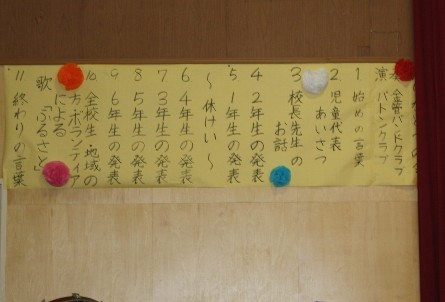 金管バンドクラブ
バトンクラブ
1 始めの言葉
2 児童代表
あいさつ
3 校長先生の
お話
4 2年生の発表
5 1年生の発表
～ 休けい ～
6 4年生の発表
7 3年生の発表
8 5年生の発表
9 6年生の発表
10 全校生・地域の
方・ボランティア
による
歌「ふるさと」
11 終わりの言葉